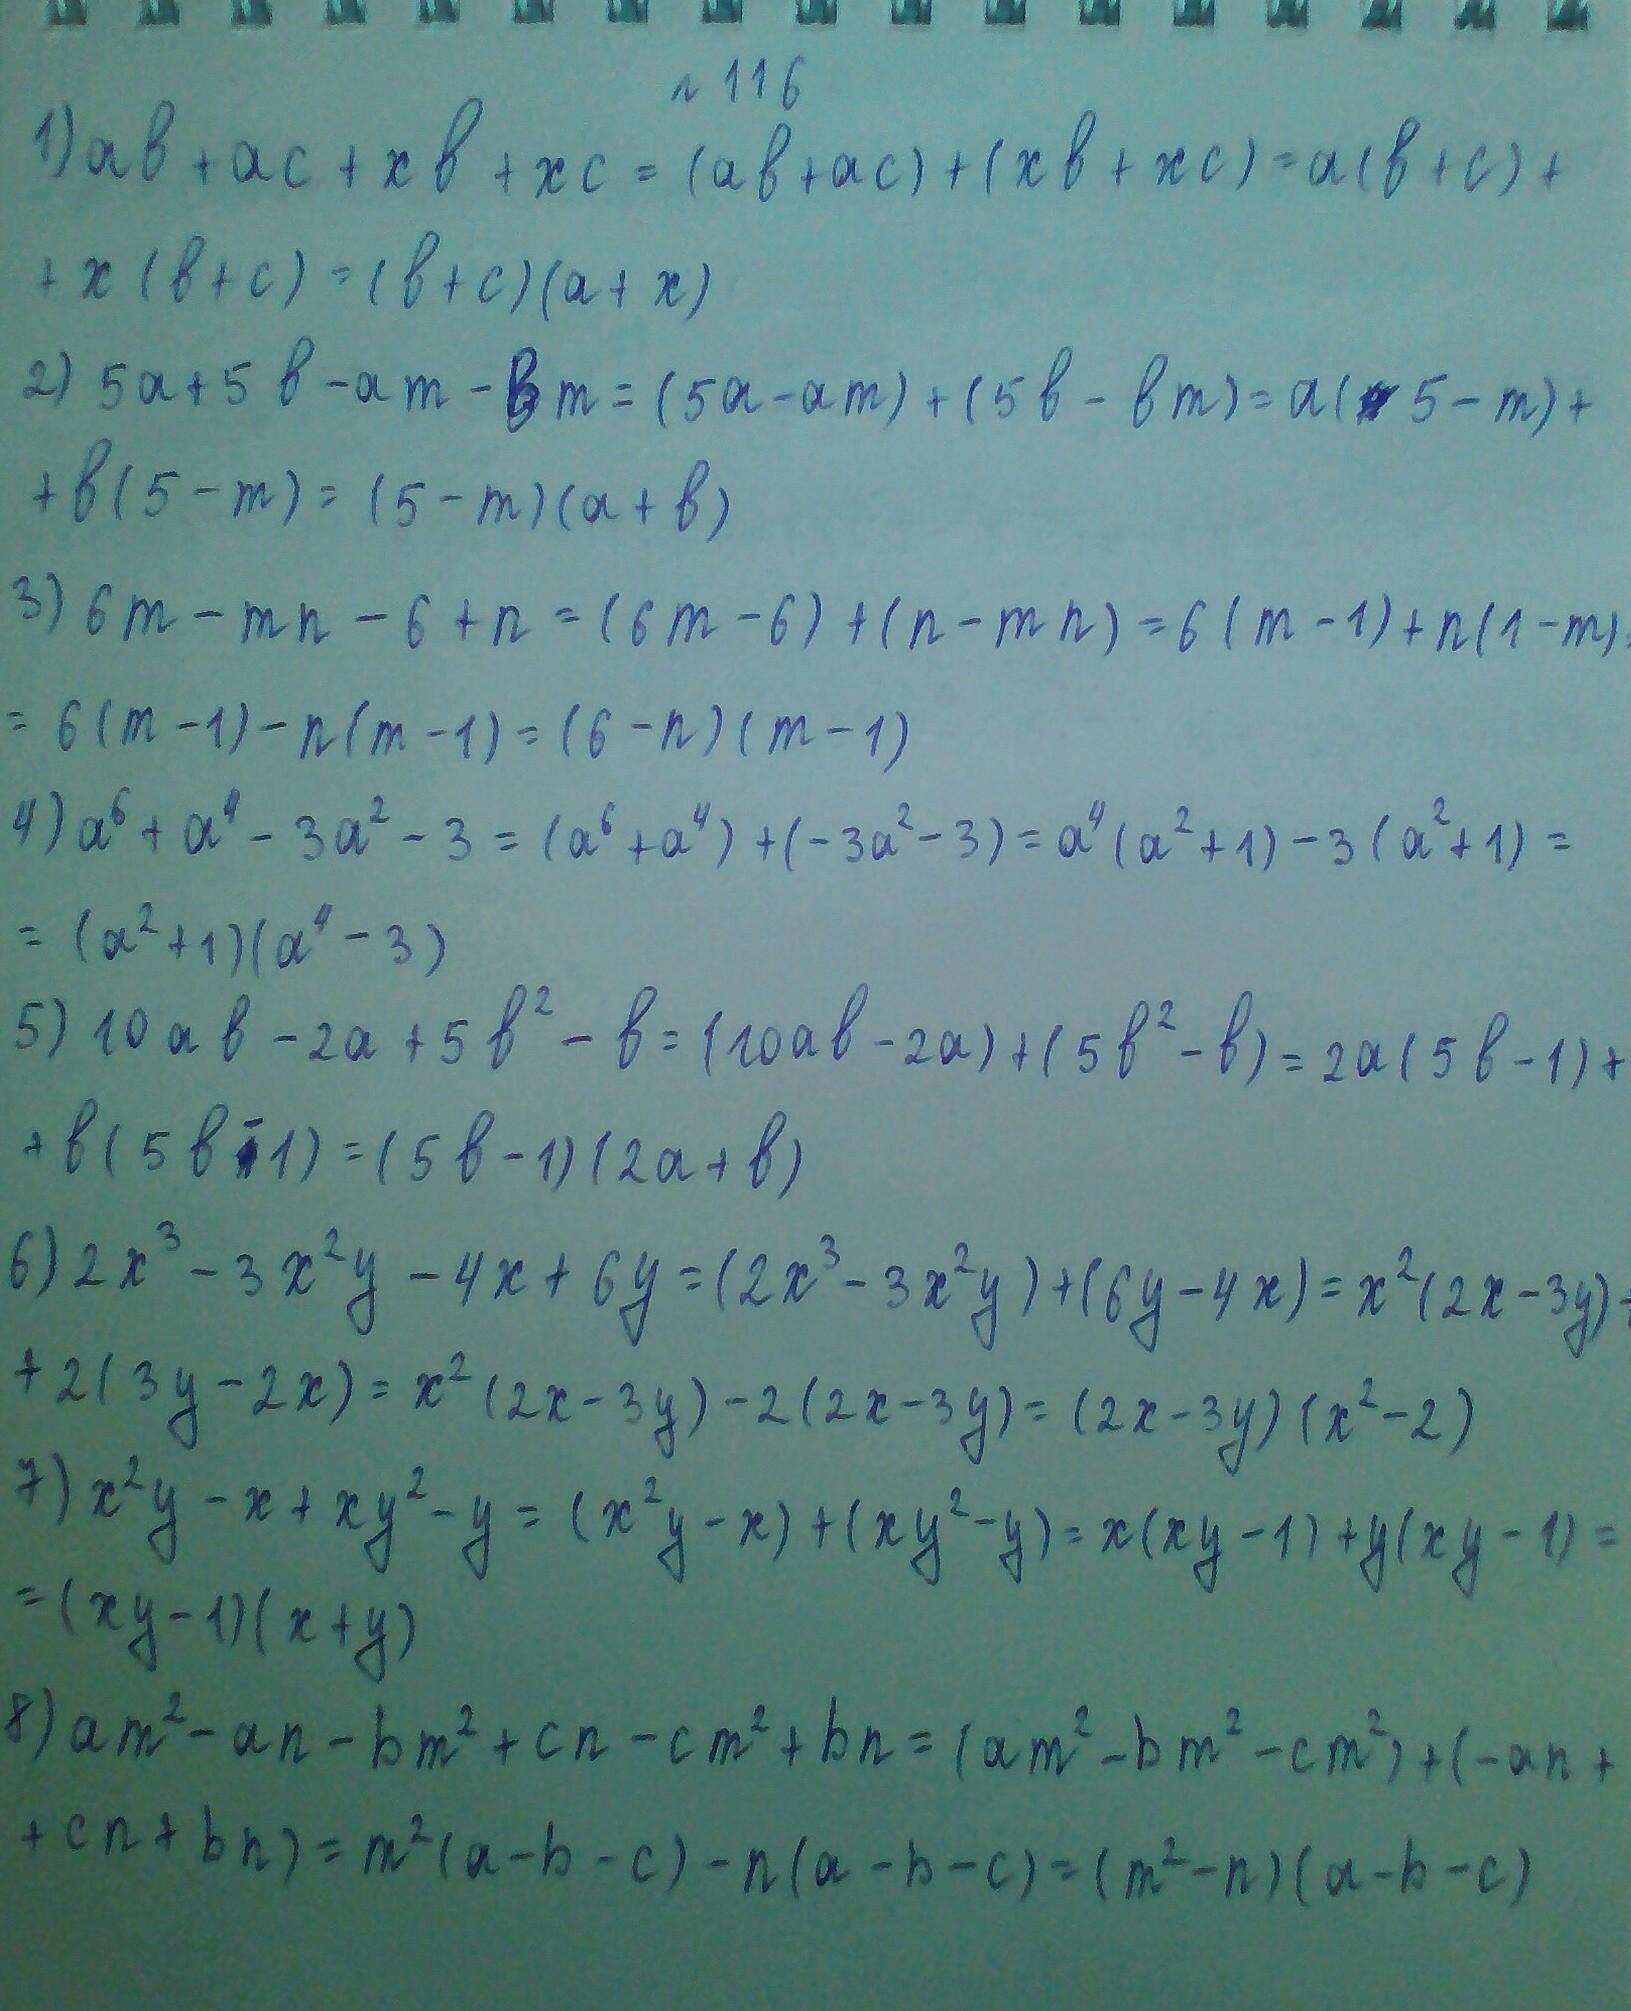 № 116
1) ab + ac + xb + xc = (ab + ac) + (xb + xc) = a(b + c) +
+ x (b + c) = (b + c)(a + x)
2) 5a + 5b - am - bm = (5a - am) + (5b - bm) = a(5 - m) +
+ b(5 - m) = (5 - m)(a + b)
3) 6m - mn - 6 + n = (6m - 6) + (n - mn) = 6(m - 1) + n(1 - m) =
= 6(m - 1) - n(m - 1) = (6 - n)(m - 1)
4) a⁶ + a⁴ - 3a² - 3 = (a⁶ + a⁴) + (-3a² - 3) = a⁴(a² + 1) - 3(a² + 1) =
= (a² + 1)(a⁴ - 3)
5) 10ab - 2a + 5b² - b = (10ab - 2a) + (5b² - b) = 2a(5b - 1) +
+ b(5b - 1) = (5b - 1)(2a + b)
6) 2x³ - 3x²y - 4x + 6y = (2x³ - 3x²y) + (6y - 4x) = x²(2x - 3y) +
+ 2(3y - 2x) = x²(2x - 3y) - 2(2x - 3y) = (2x - 3y)(x² - 2)
7) x²y - x + xy² - y = (x²y - x) + (xy² - y) = x(xy - 1) + y(xy - 1) =
= (xy - 1)(x + y)
8) am² - an - bm² + cn - cm² + bn = (am² - bm² - cm²) + (-an +
+ cn + bn) = m²(a - b - c) - n(a - b - c) = (m² - n)(a - b - c)